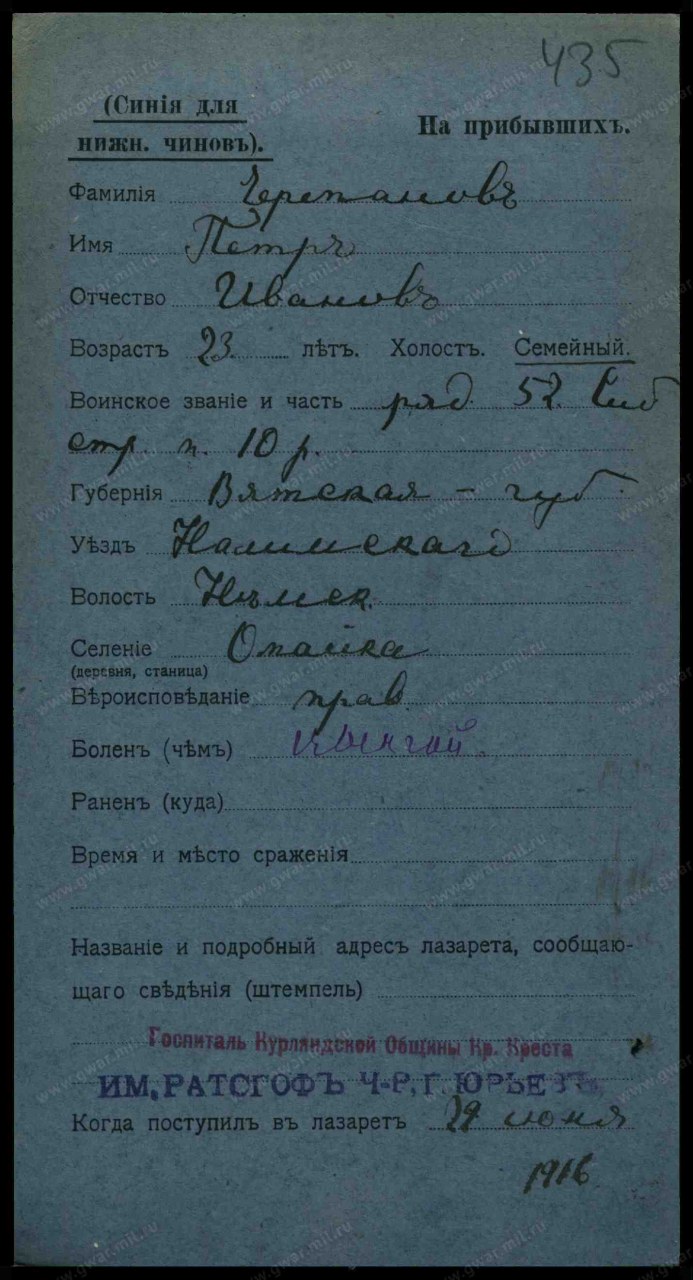 435
(Синія для
нижн. чиновъ).
На прибывшихъ.
Фамилія Черепановъ
Имя Петръ
Отчество Ивановъ
Возрастъ 23 лѣтъ. Холостъ. Семейный.
Воинское званіе и часть ряд. 52. Сиб
стр. п. 10 р.
Губернія Вятская – губ.
Уѣздъ
Волость
Селеніе Опайка
(деревня, станица)
Вѣроисповѣданіе прав.
Боленъ (чѣмъ) цынгой.
Раненъ (куда)
Время и мѣсто сраженія
Названіе и подробный адресъ лазарета, сообщаю-
щаго свѣдѣнія (штемпель)
Госпиталь Курляндской Общины Кр. Креста
ИМ. РАТСГОФЪ Ч-Р, Г. ЮРЬЕВЪ.
Когда поступилъ въ лазаретъ 29 июня
1916
www.gwar.mil.ru